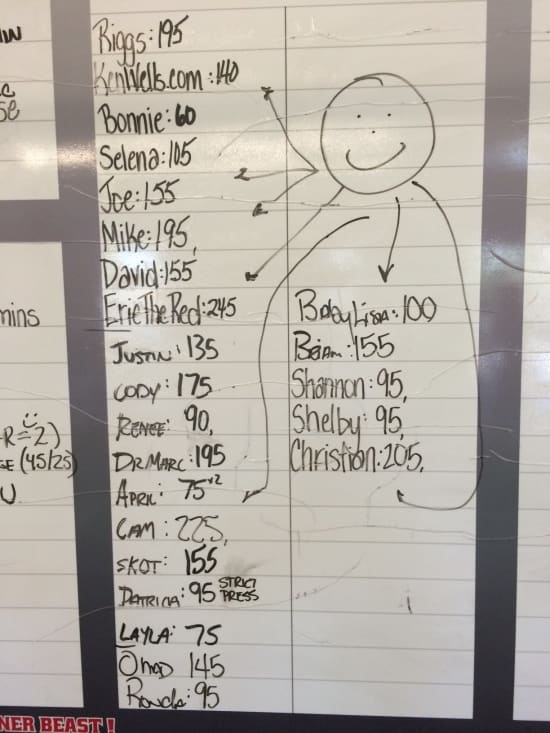 Riggs: 195
KenWells.com: 140
Bonnie: 60
Selena: 105
Joe: 155
Mike: 195,
David: 155
EricTheRed: 245
JUSTIN: 135
CODY: 175
RENEE: 90,
DR MARC: 195
APRIL: 75 x2
CAM: 225,
SKOT: 155
PATRICIA: 95 STRICT PRESS
LAYLA: 75
Ohad 145
Ronda: 95
BabyLissa: 100
BRIAN: 155
Shannon: 95,
Shelby: 95,
Christian: 205,
mins
-R=2)
SE (45/25)
U
NER BEAST!